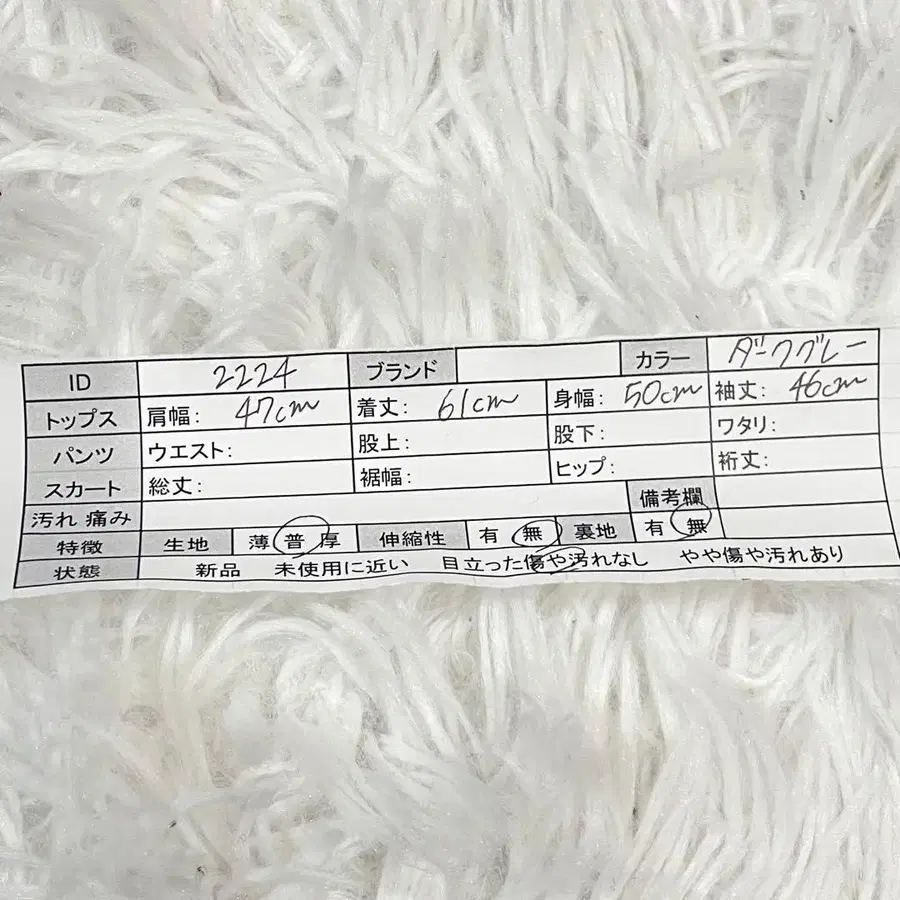 ID 2224 ブランド カラー ダークグレー
トップス 肩幅: 47cm 着丈: 61cm 身幅: 50cm 袖丈: 46cm
パンツ ウエスト: 股上: 股下: ワタリ:
スカート 総丈: 裾幅: ヒップ: 裄丈:
汚れ 痛み 備考欄
特徴 生地 薄 普 厚 伸縮性 有 無 裏地 有 無
状態 新品 未使用に近い 目立った傷や汚れなし やや傷や汚れあり